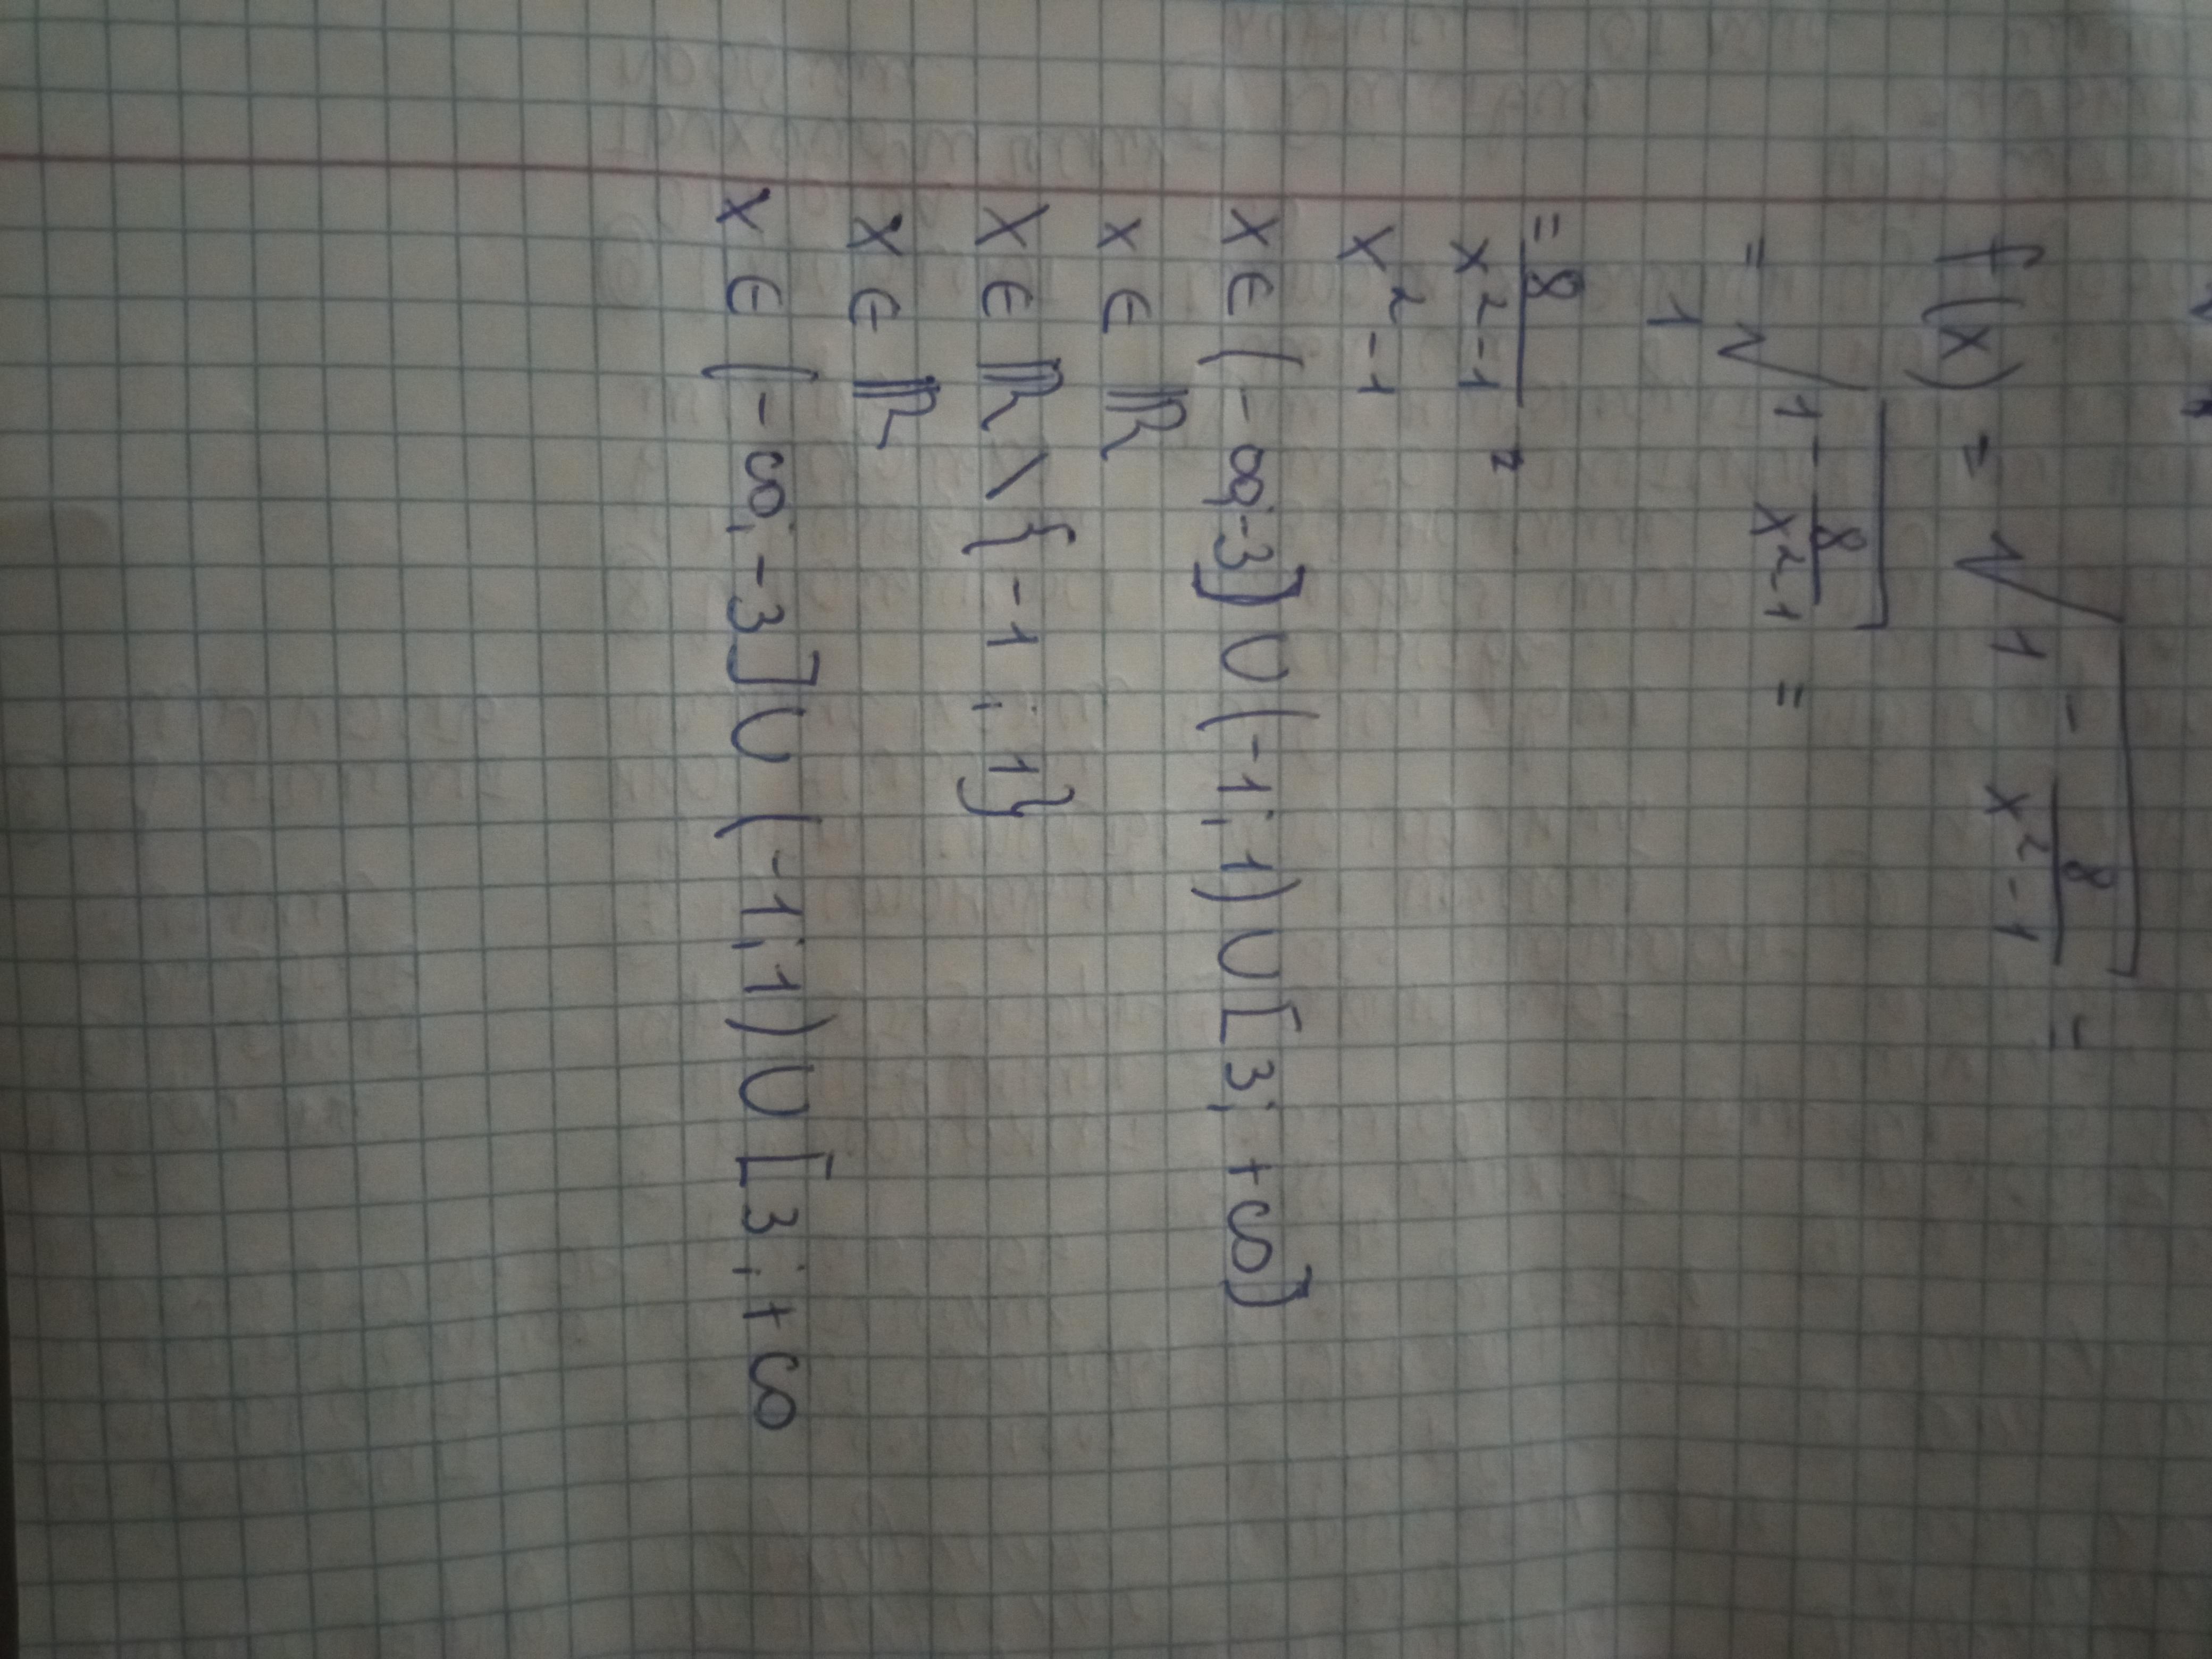 f(x) = √(1 - 8/(x² - 1)) =
= √(1 - 8/(x² - 1)) =
1
= 8/(x² - 1) =
x² - 1
x ∈ (-∞; -3] ∪ (-1; 1) ∪ [3; +∞)
x ∈ ℝ
x ∈ ℝ \ {-1; 1}
x ∈ ℝ
x ∈ (-∞; -3] ∪ (-1; 1) ∪ [3; +∞